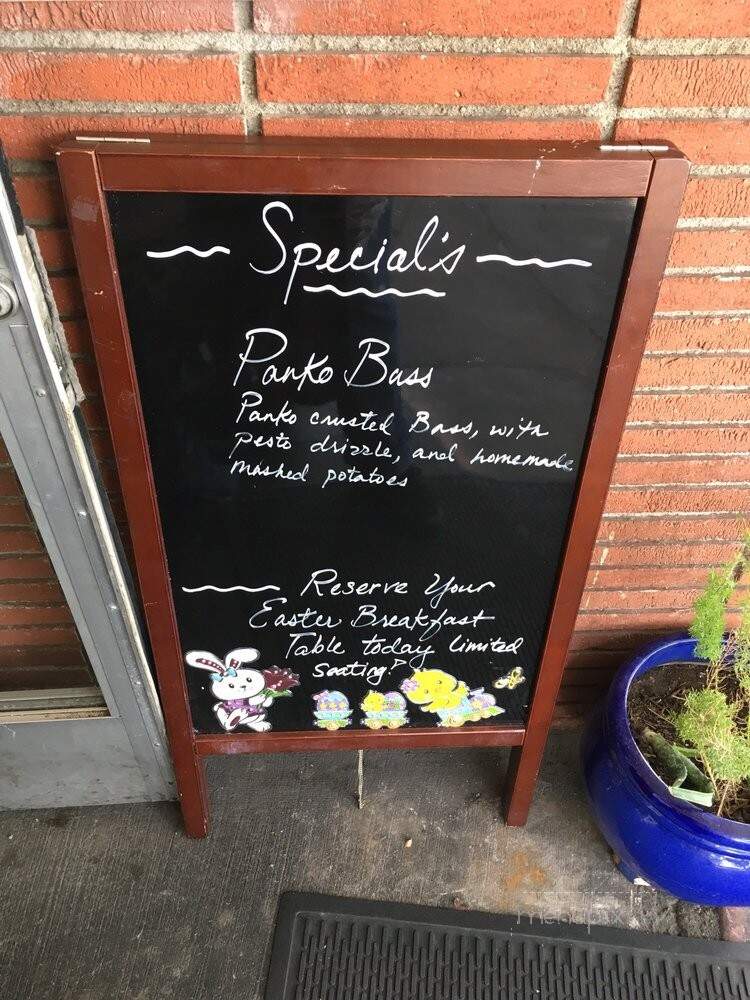 Special's
Panko Bass
Panko crusted Bass, with
pesto drizzle, and homemade
mashed potatoes
Reserve Your
Easter Breakfast
Table today limited
seating!
menupix